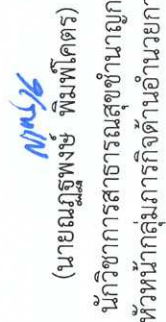 (นายณฏฐพงษ์ พิมพ์โคตร)
นักวิชาการสาธารณสุขชำนาญก
หัวหน้ากลุ่มภารกิจด้านอำนวยกา